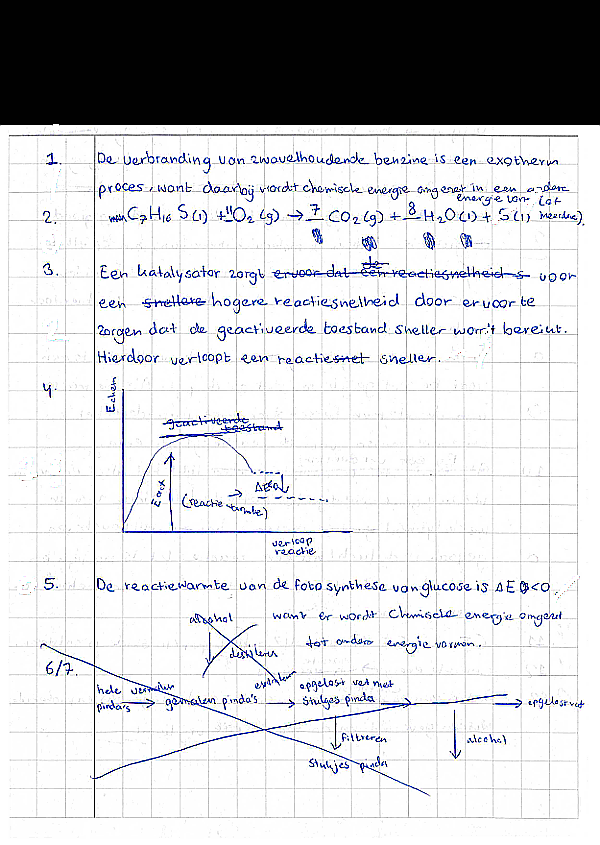 1. De verbranding van zwavelhoudende benzine is een exotherm
proces, want daarbij wordt chemische energie omgezet in een andere
energie vorm (of
meerdere).
2. C7H16 S(l) + 11O2 (g) → 7 CO2 (g) + 8 H2O (l) + S(l)
3. Een katalysator zorgt ervoor dat de een reactiesnelheid s voor
een snellere hogere reactiesnelheid door ervoor te
zorgen dat de geactiveerde toestand sneller wordt bereikt.
Hierdoor verloopt een reactiesnel sneller.
4. Echem
geactiveerde
toestand
Eact
(reactie warmte) → ΔE<0
verloop
reactie
5. De reactiewarmte van de fotosynthese van glucose is ΔE <0
want er wordt Chemische energie omgezet
tot andere energie vormen.
alcohol
destileren
6/7.
hele vermalen
pinda's → gemalen pinda's → opgelost vet met
stukjes pinda → → opgelost vet
filtreren
alcohol
stukjes pinda